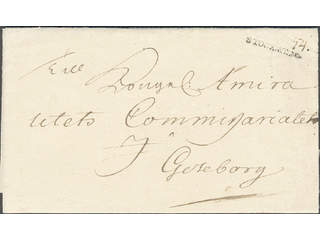 74.
STOCKHOLM
Till
Kongl: Amira
litets Commissariatet
i
Götheborg